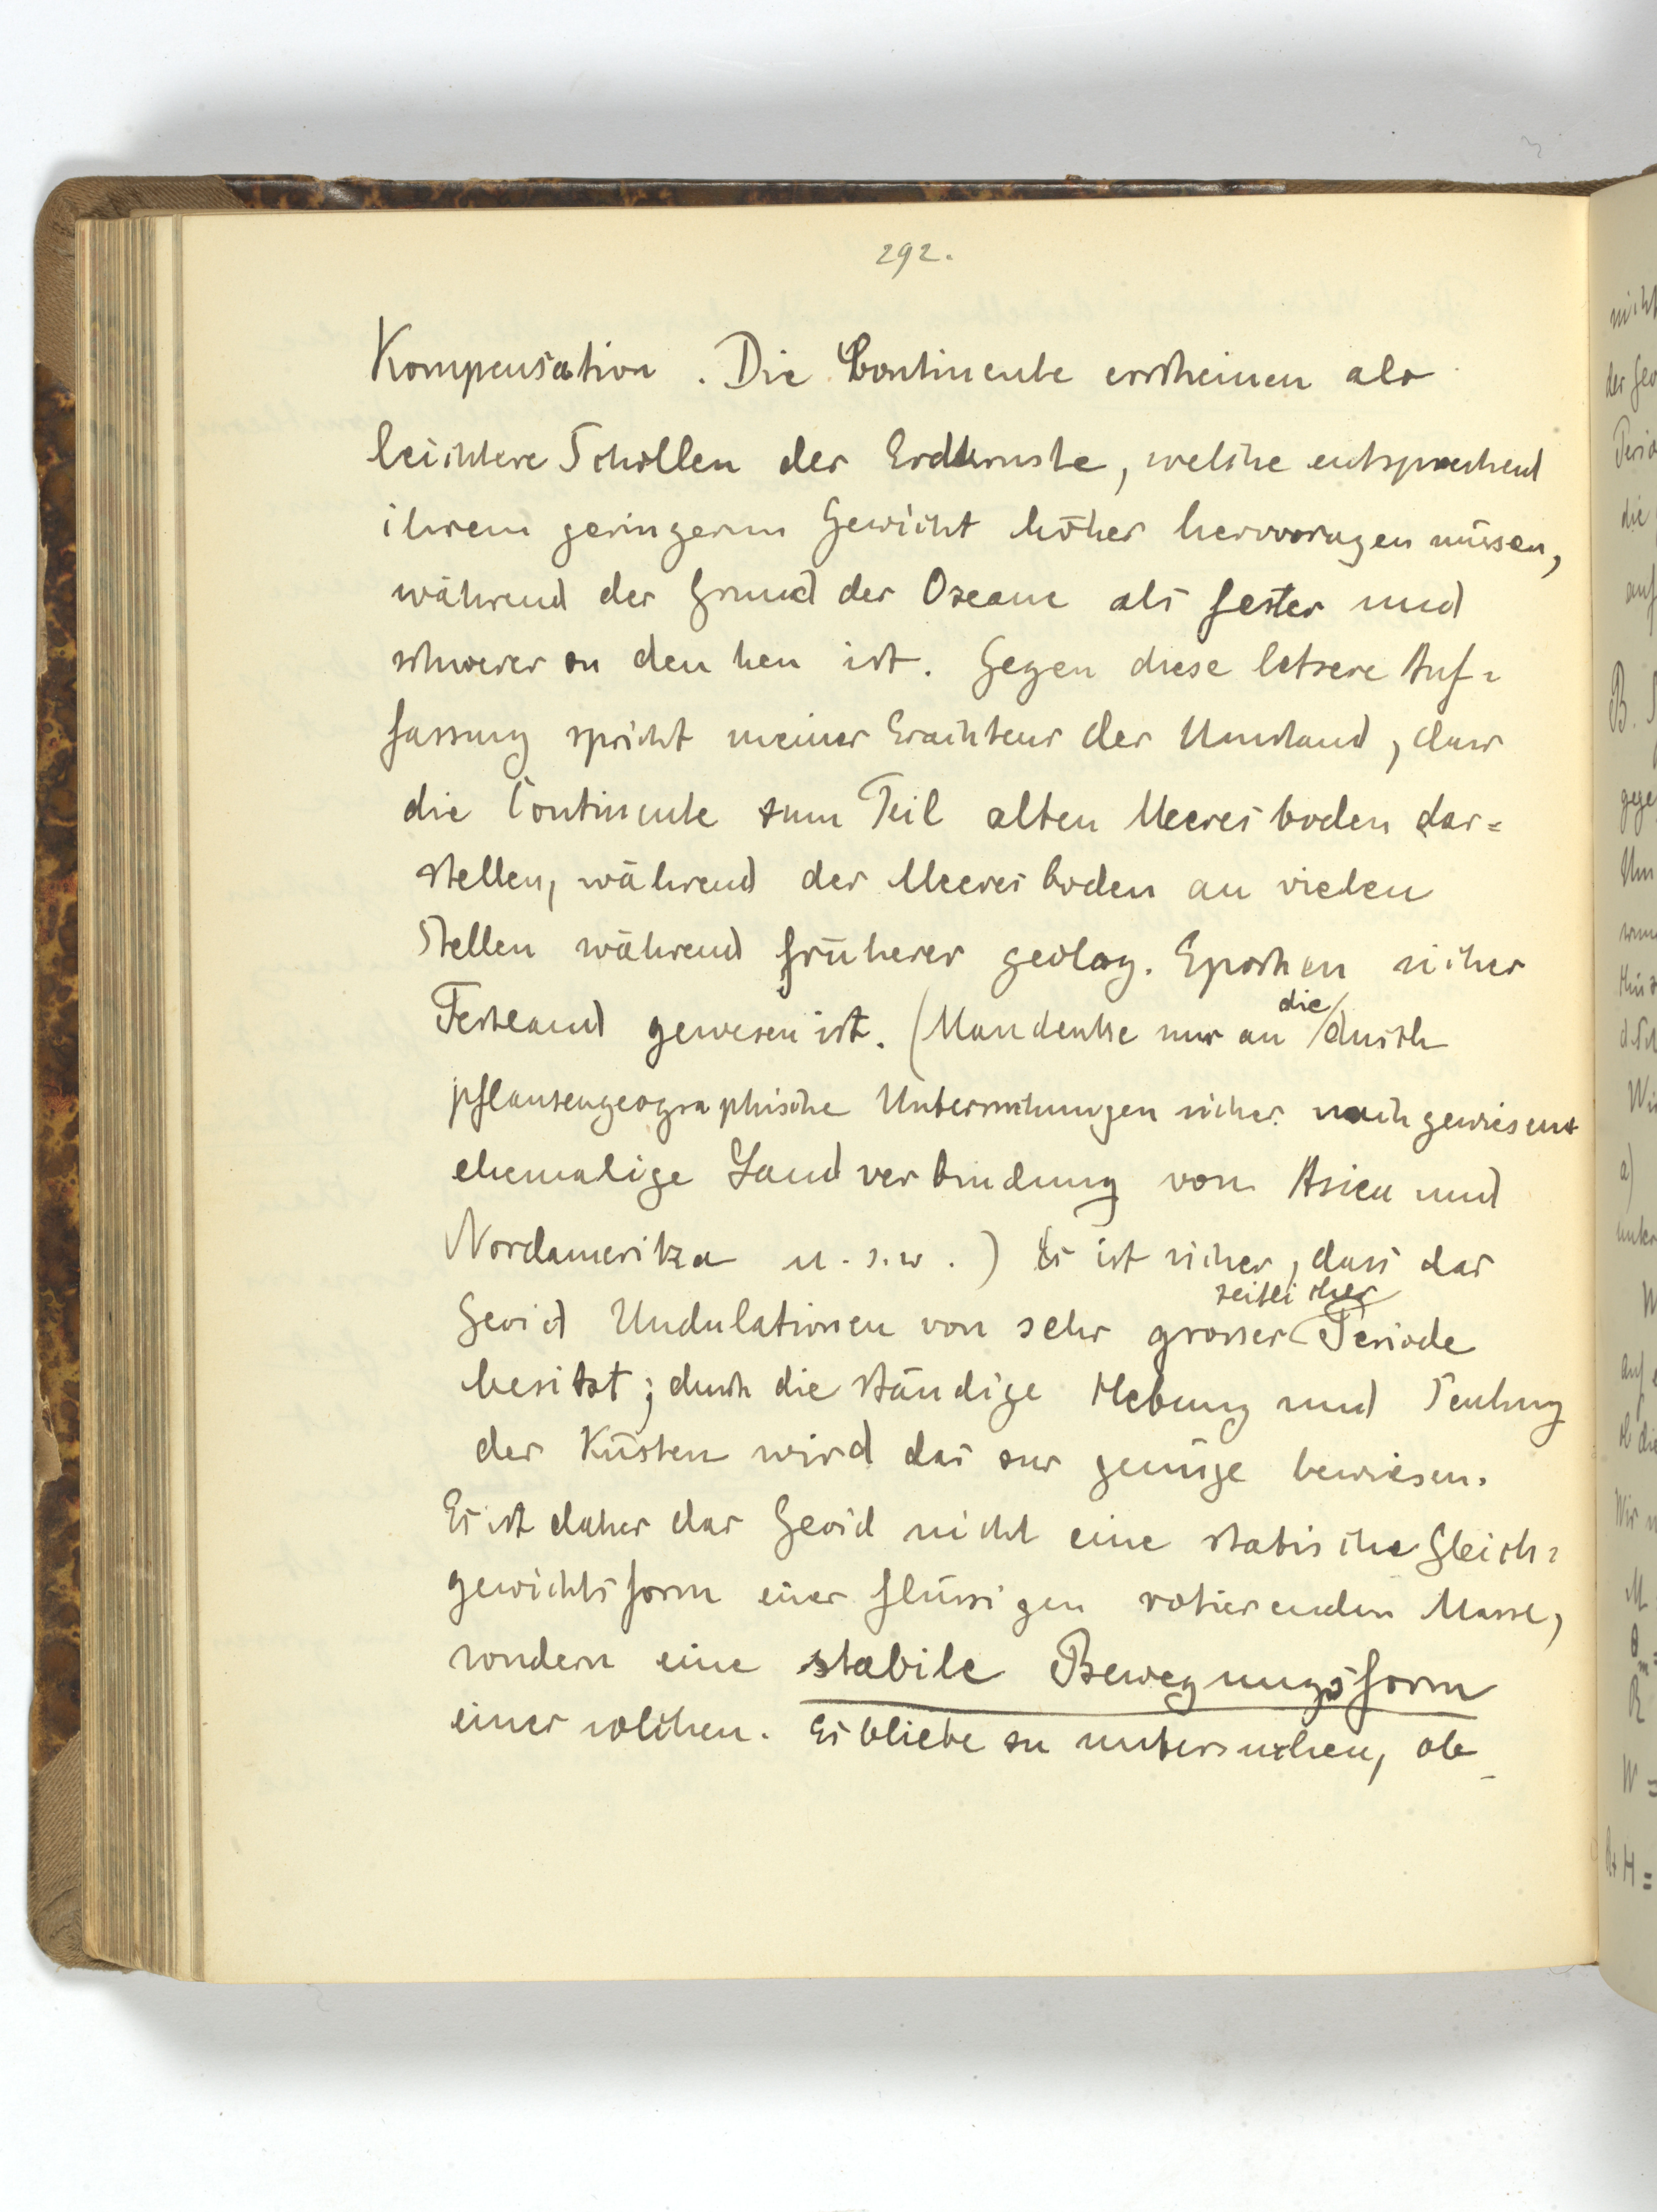 292.
Kompensation. Die Continente erscheinen als
leichtere Schollen der Erdkruste, welche entsprechend
ihrem geringerm Gewicht höher hervorragen müssen,
während der Grund der Ozeane als fester und
schwerer zu denken ist. Gegen diese letzere Auf=
fassung spricht meines Erachtens der Umstand, dass
die Continente zum Teil alten Meeresboden dar=
stellen, während der Meeresboden an vielen
Stellen während früherer geolog. Epochen sicher
Festland gewesen ist. (Man denke nur an die durch
pflanzengeographische Untersuchungen sicher nachgewiesene
ehemalige Landverbindung von Asien und
Nordamerika u.s.w.) Es ist sicher, dass das
Geoid Undulationen von sehr grosser zeitlicher Periode
besitzt; durch die ständige Hebung und Senkung
der Küsten wird das zur genüge bewiesen.
Es ist daher das Geoid nicht eine statische Gleich=
gewichtsform einer flüssigen rotierenden Masse,
sondern eine stabile Bewegungsform
einer solchen. Es bliebe zu untersuchen, ob